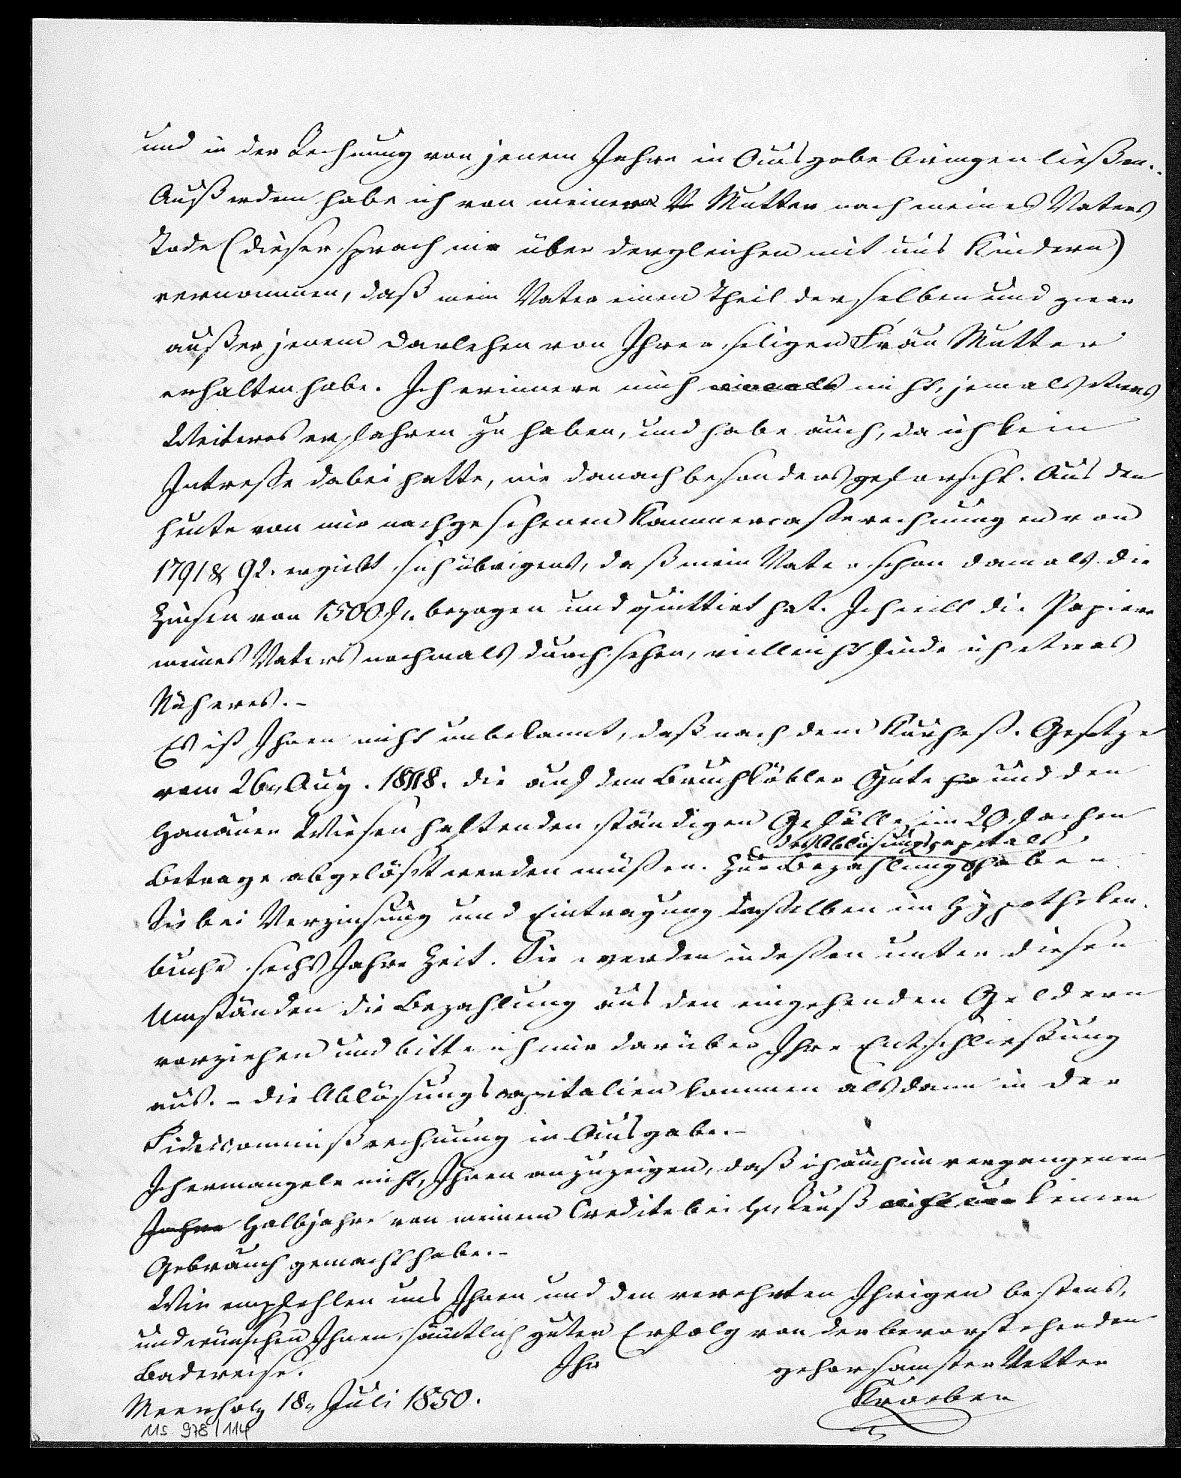 und in der Rechnung von jenem Jahre in Ausgabe bringen ließen.
Außerdem habe ich von meiner Mutter nach meines Vaters
Tode (dieser sprach nie über dergleichen mit uns Kindern)
vernommen, daß mein Vater einen Theil derselben und zwar
außer jenem Darlehen von Ihrer seligen Frau Mutter
erhalten habe. Ich erinnere mich nicht, jemals etwas
Weiteres erfahren zu haben, und habe auch, da ich kein
Intresse dabei hatte, nie danach besonders geforscht. Aus den
heute von mir nachgesehenen Kammercasserechnungen von
1791 & 92. ergiebt sich übrigens, daß mein Vater schon damals die
Zinsen von 1500 fl. bezogen und quittirt hat. Ich will die Papiere
meines Vaters nochmals durchsehen, vielleicht finde ich etwas
Näheres. –
Es ist Ihnen nicht unbekannt, daß nach dem Kurhess. Gesetze
vom 26n Aug. 1848. die auf dem Bruchköbler Gute und den
Hanauer Wiesen haftenden ständigen Gefälle im 20fachen
Betrage abgelößt werden müßen. Zur Bezahlung des Ablösungscapitals haben
Sie bei Verzinsung und Eintragung desselben im Hypotheken-
buche sechs Jahre Zeit. Sie werden indessen unter diesen
Umständen die Bezahlung aus den eingehenden Geldern
vorziehen und bitte ich mir darüber Ihre Entschließung
aus. – Die Ablösungscapitalien kommen alsdann in der
Fideicommißrechnung in Ausgabe. –
Ich ermangele nicht, Ihnen anzuzeigen, daß ich auch im vergangenen
Jahre Halbjahre von meinem Credite bei H. keinen
Gebrauch gemacht habe. –
Wir empfehlen uns Ihnen und den verehrten Ihrigen bestens,
und wünschen Ihnen sämtlich guten Erfolg von der bevorstehenden
Badereise. Ihr gehorsamster Vetter
Meerholz 18n Juli 1850. Kroeber
MS 978/114